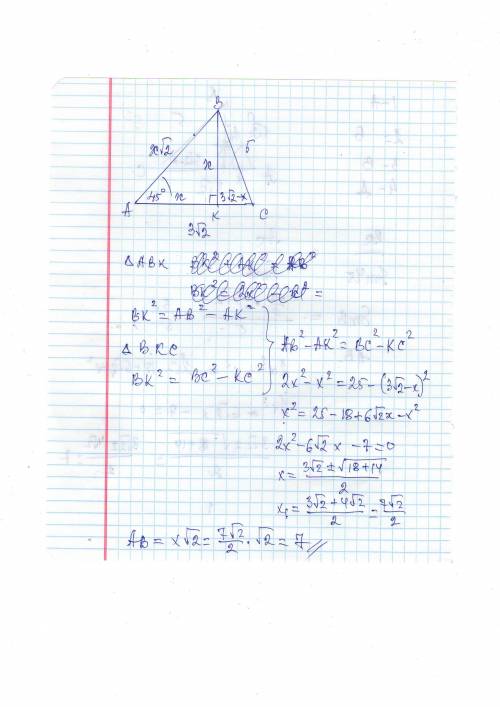 B
x√2
x
5
45°
x
3√2-x
A
K
C
3√2
△ABK
BK² = AB² - AK²
△BKC
BK² = BC² - KC²
AB² - AK² = BC² - KC²
2x² - x² = 25 - (3√2-x)²
x² = 25 - 18 + 6√2x - x²
2x² - 6√2x - 7 = 0
x = (3√2 ± √(18+14))/2
x₁ = (3√2 + 4√2)/2 = 7√2/2
AB = x√2 = 7√2/2 · √2 = 7